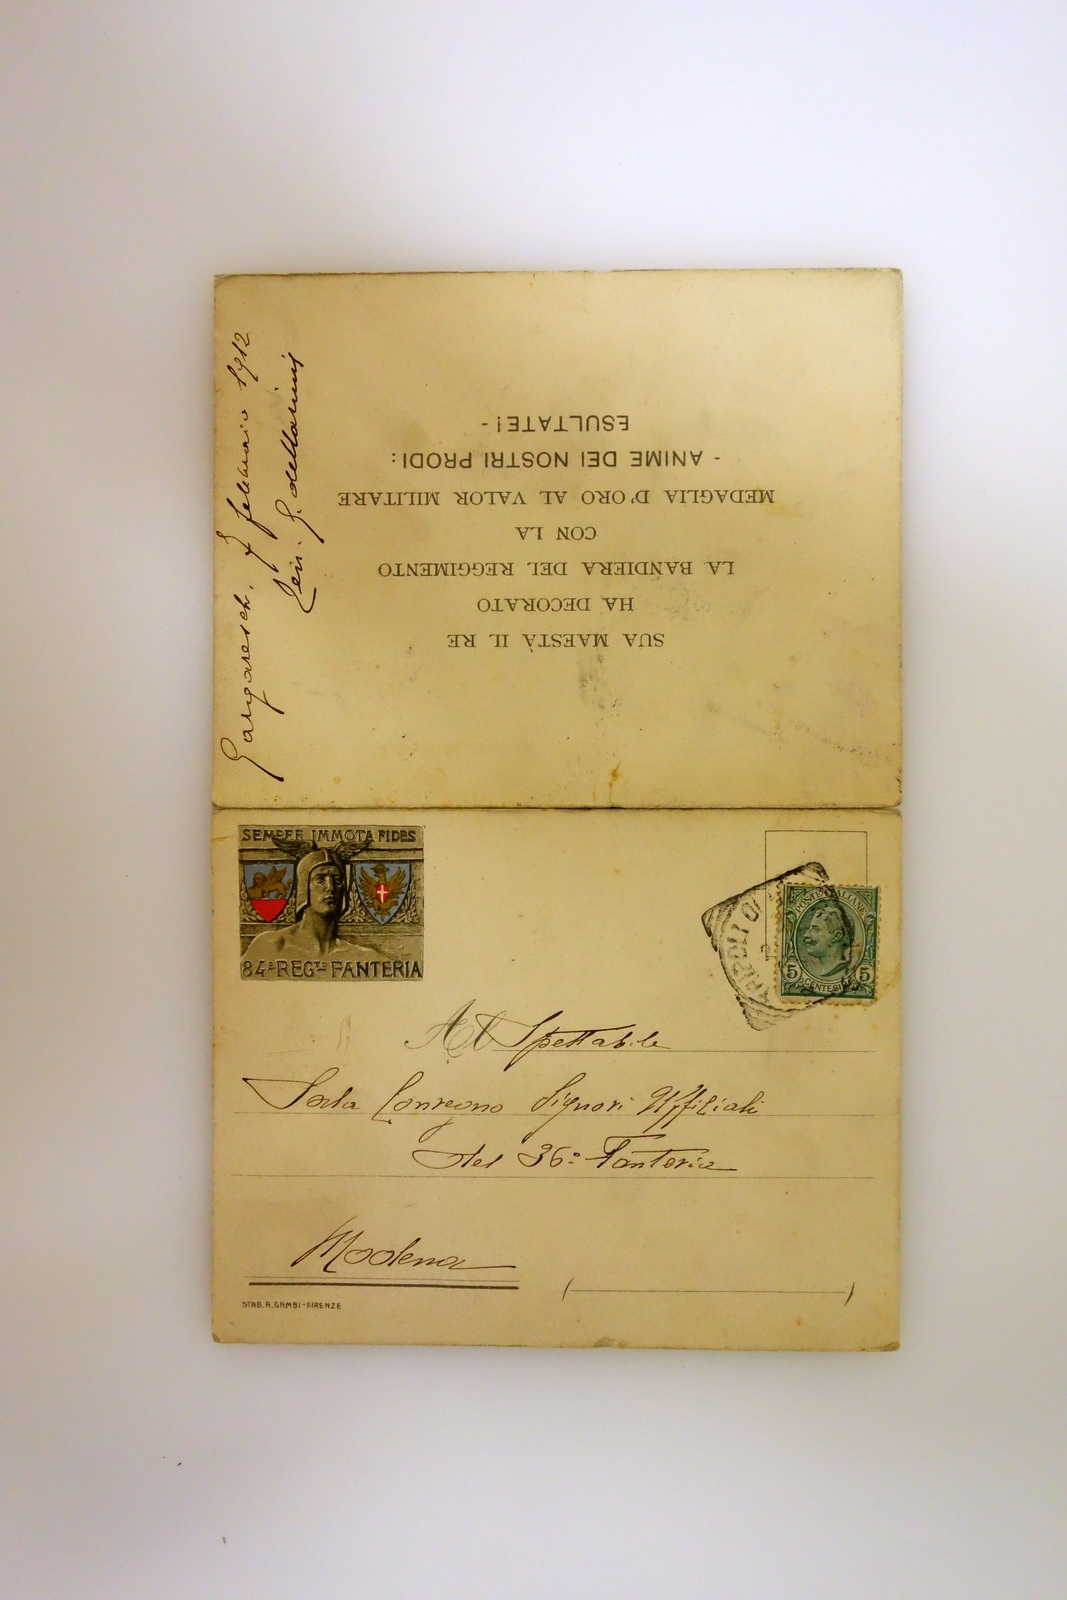 Gargaresch, 7 febbraio 1912
SUA MAESTÀ IL RE
HA DECORATO
LA BANDIERA DEL REGGIMENTO
CON LA
MEDAGLIA D'ORO AL VALOR MILITARE
- ANIME DEI NOSTRI PRODI:
ESULTATE! -
SEMPER IMMOTA FIDES
84º REGTO FANTERIA
TRIPOLI DI
POSTE ITALIANE
5 CENTESIMI 5
Al Spettabile
Sala Convegno Signori Ufficiali
del 36º Fanteria
Modena
STAB. A. GAMBI - FIRENZE